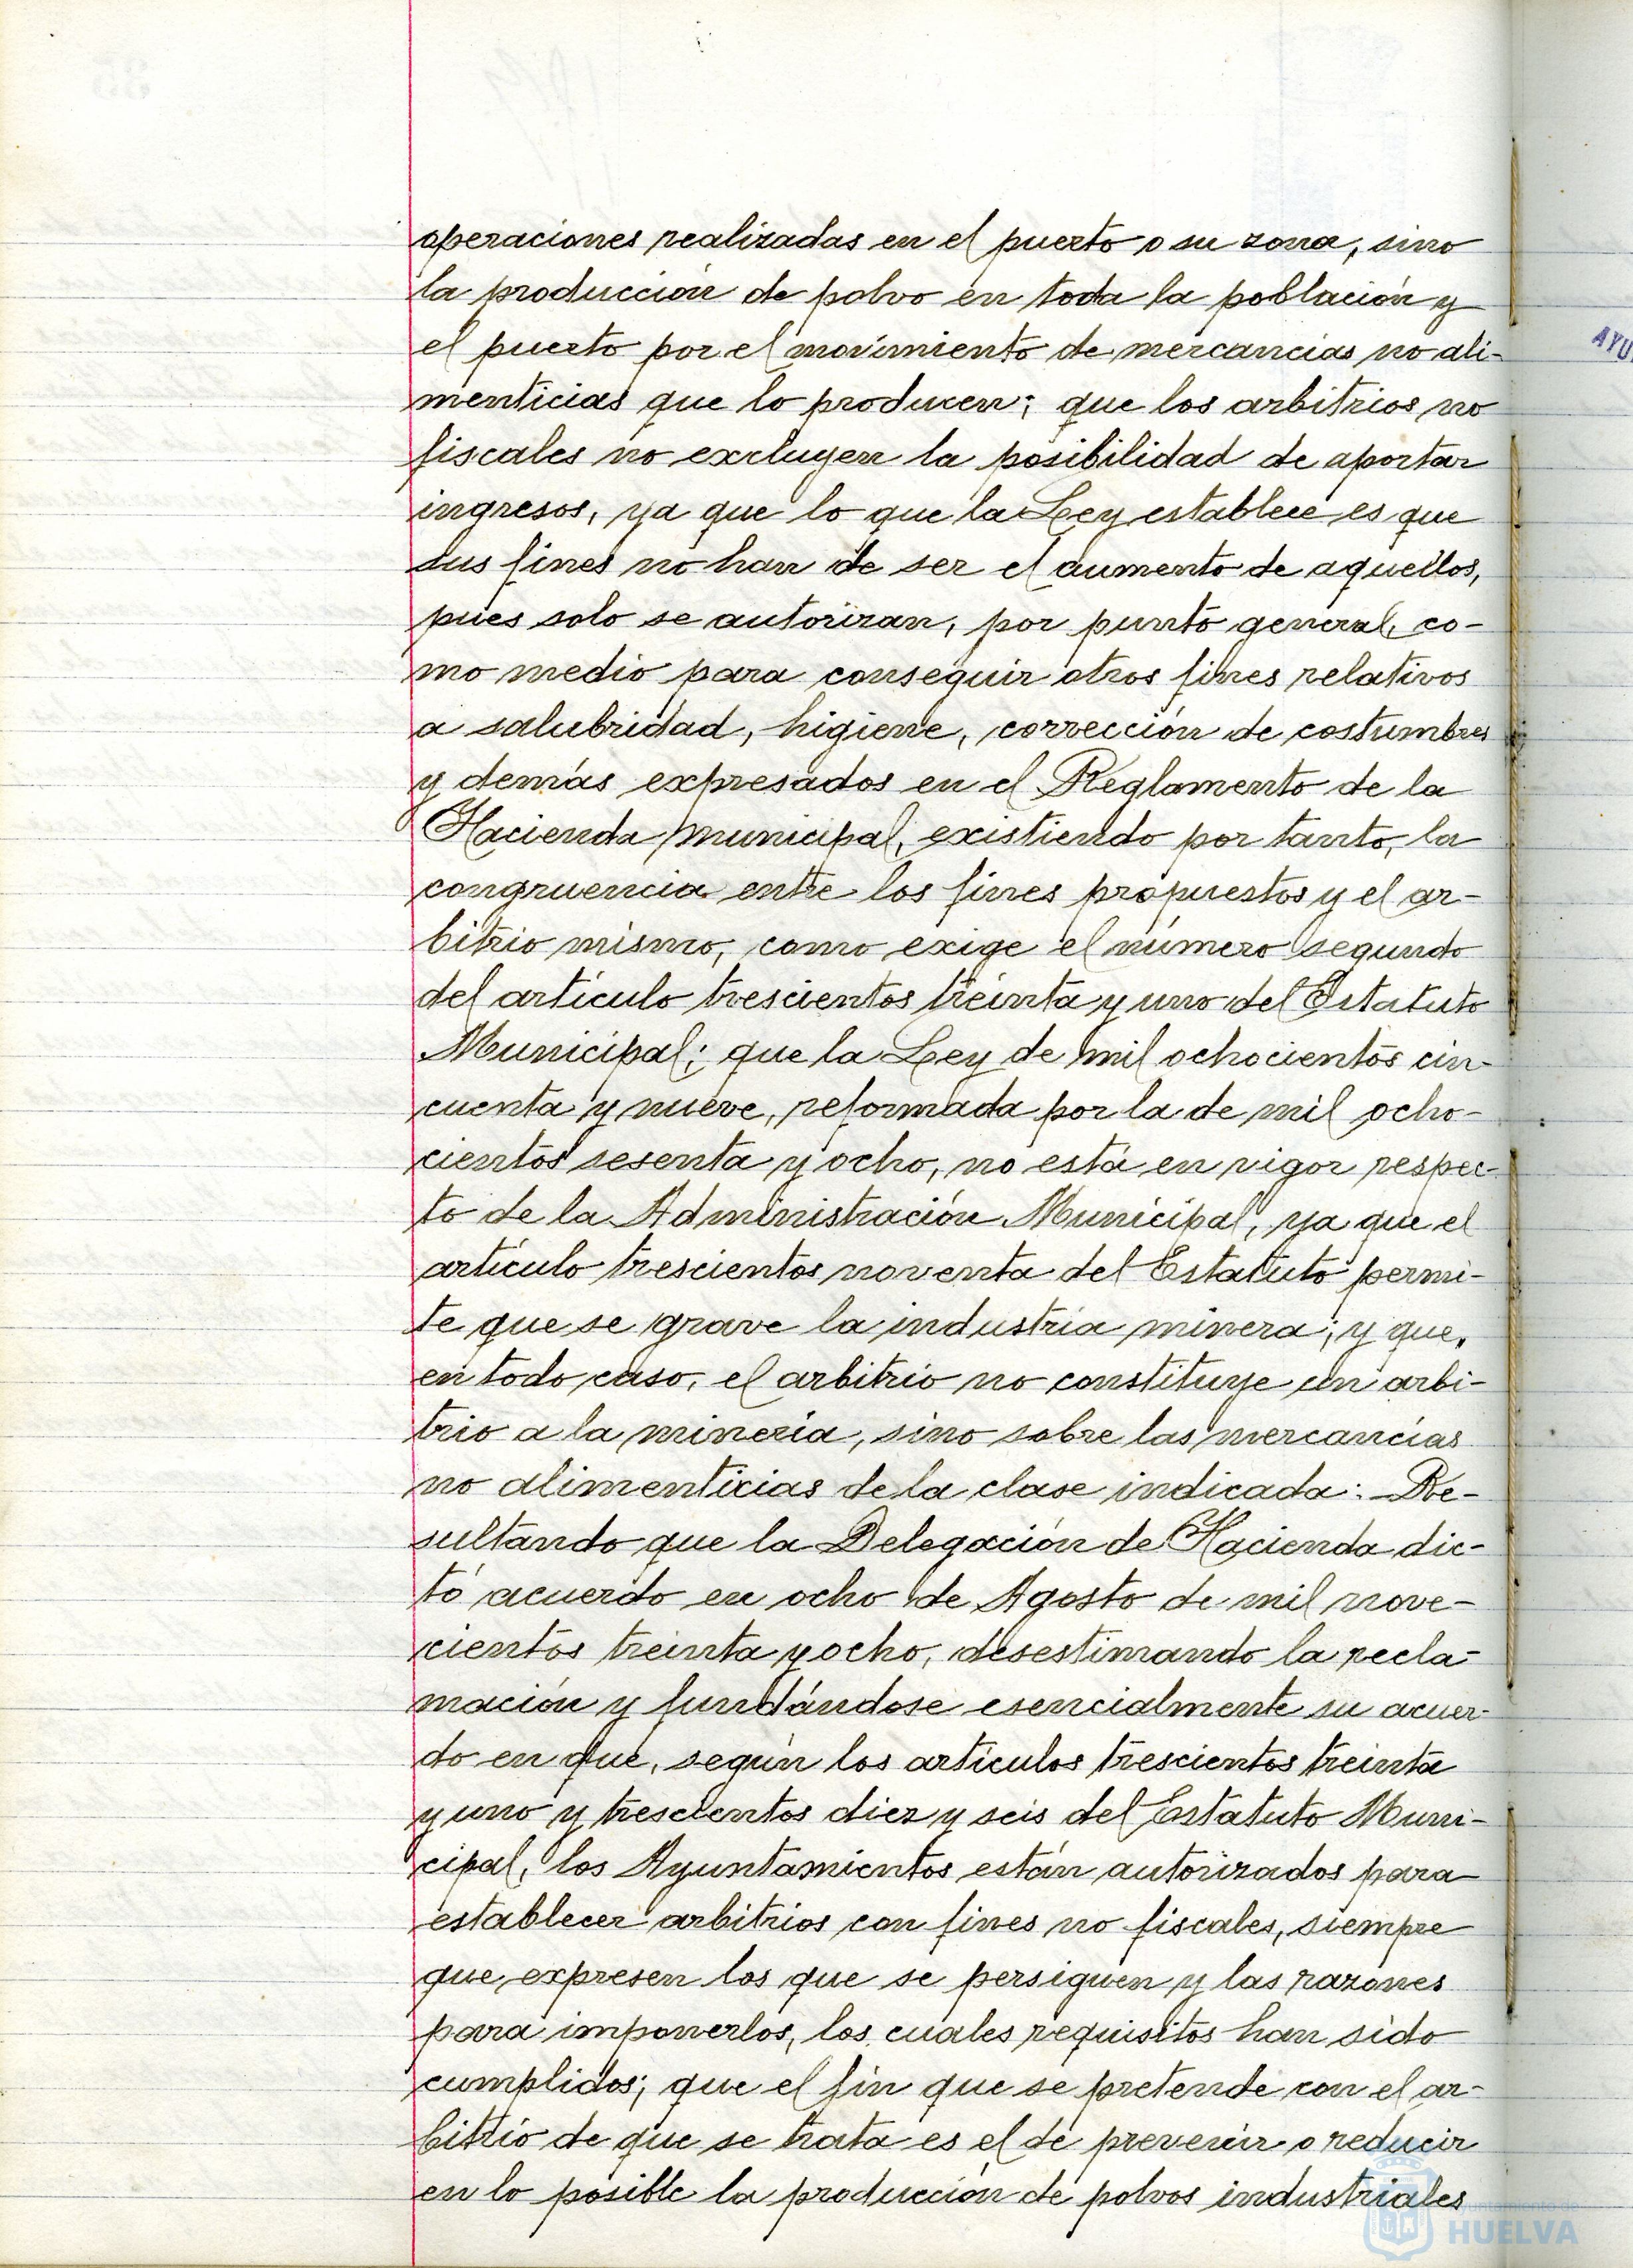 operaciones realizadas en el puerto o su zona, sino
la producción de polvo en toda la población y
el puerto por el movimiento de mercancias no ali-
menticias que lo producen; que los arbitrios no
fiscales no excluyen la posibilidad de aportar
ingresos, ya que lo que la Ley establece es que
sus fines no han de ser el aumento de aquellos,
pues solo se autorizan, por punto general, co-
mo medio para conseguir otros fines relativos
a salubridad, higiene, corrección de costumbres
y demás expresados en el Reglamento de la
Hacienda municipal, existiendo por tanto, la
congruencia entre los fines propuestos y el ar-
bitrio mismo, como exige el número segundo
del artículo trescientos treinta y uno del Estatuto
Municipal; que la Ley de mil ochocientos cin-
cuenta y nueve, reformada por la de mil ocho-
cientos sesenta y ocho, no está en vigor respec-
to de la Administración Municipal, ya que el
artículo trescientos noventa del Estatuto permi-
te que se grave la industria minera; y que,
en todo caso, el arbitrio no constituye un arbi-
trio a la minería, sino sobre las mercancías
no alimenticias de la clase indicada: Re-
sultando que la Delegación de Hacienda dic-
tó acuerdo en ocho de Agosto de mil nove-
cientos treinta y ocho, desestimando la recla-
mación y fundándose esencialmente su acuer-
do en que, según los artículos trescientos treinta
y uno y trescientos diez y seis del Estatuto Muni-
cipal, los Ayuntamientos están autorizados para
establecer arbitrios con fines no fiscales, siempre
que expresen los que se persiguen y las razones
para imponerlos, los cuales requisitos han sido
cumplidos; que el fin que se pretende con el ar-
bitrio de que se trata es el de prevenir o reducir
en lo posible la producción de polvos industriales
HUELVA